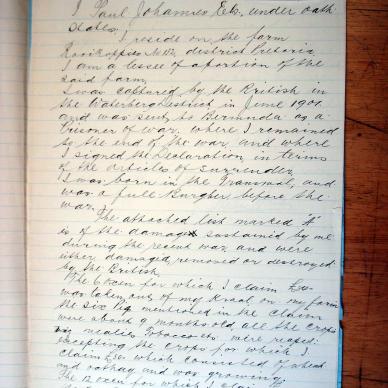 I Paul Johannes Els, under oath
states, I reside on the farm
district Pretoria
I am a lessee of a portion of the
said farm,
I was captured by the British in
the Waterberg District in June 1901
and was sent to Bermuda as a
Prisoner of war, where I remained
to the end of the war, and where
I signed the Declaration in terms
of the Articles of Surrender,
I was born in the Transvaal, and
was a full Burgher before the
war,
The attached list marked "A"
is of the damages sustained by me
during the recent war and were
either damaged, removed or destroyed
by the British,
The Oxen for which I claim
was taken out of my Kraal on my farm
the six Pigs mentioned in the claim
were about 9 months old, all the crops
mealies, Tobacco etc. were reaped
excepting the crops for which I
claim which consisted of wheat
and oathay and was growing,
The Oxen for which I